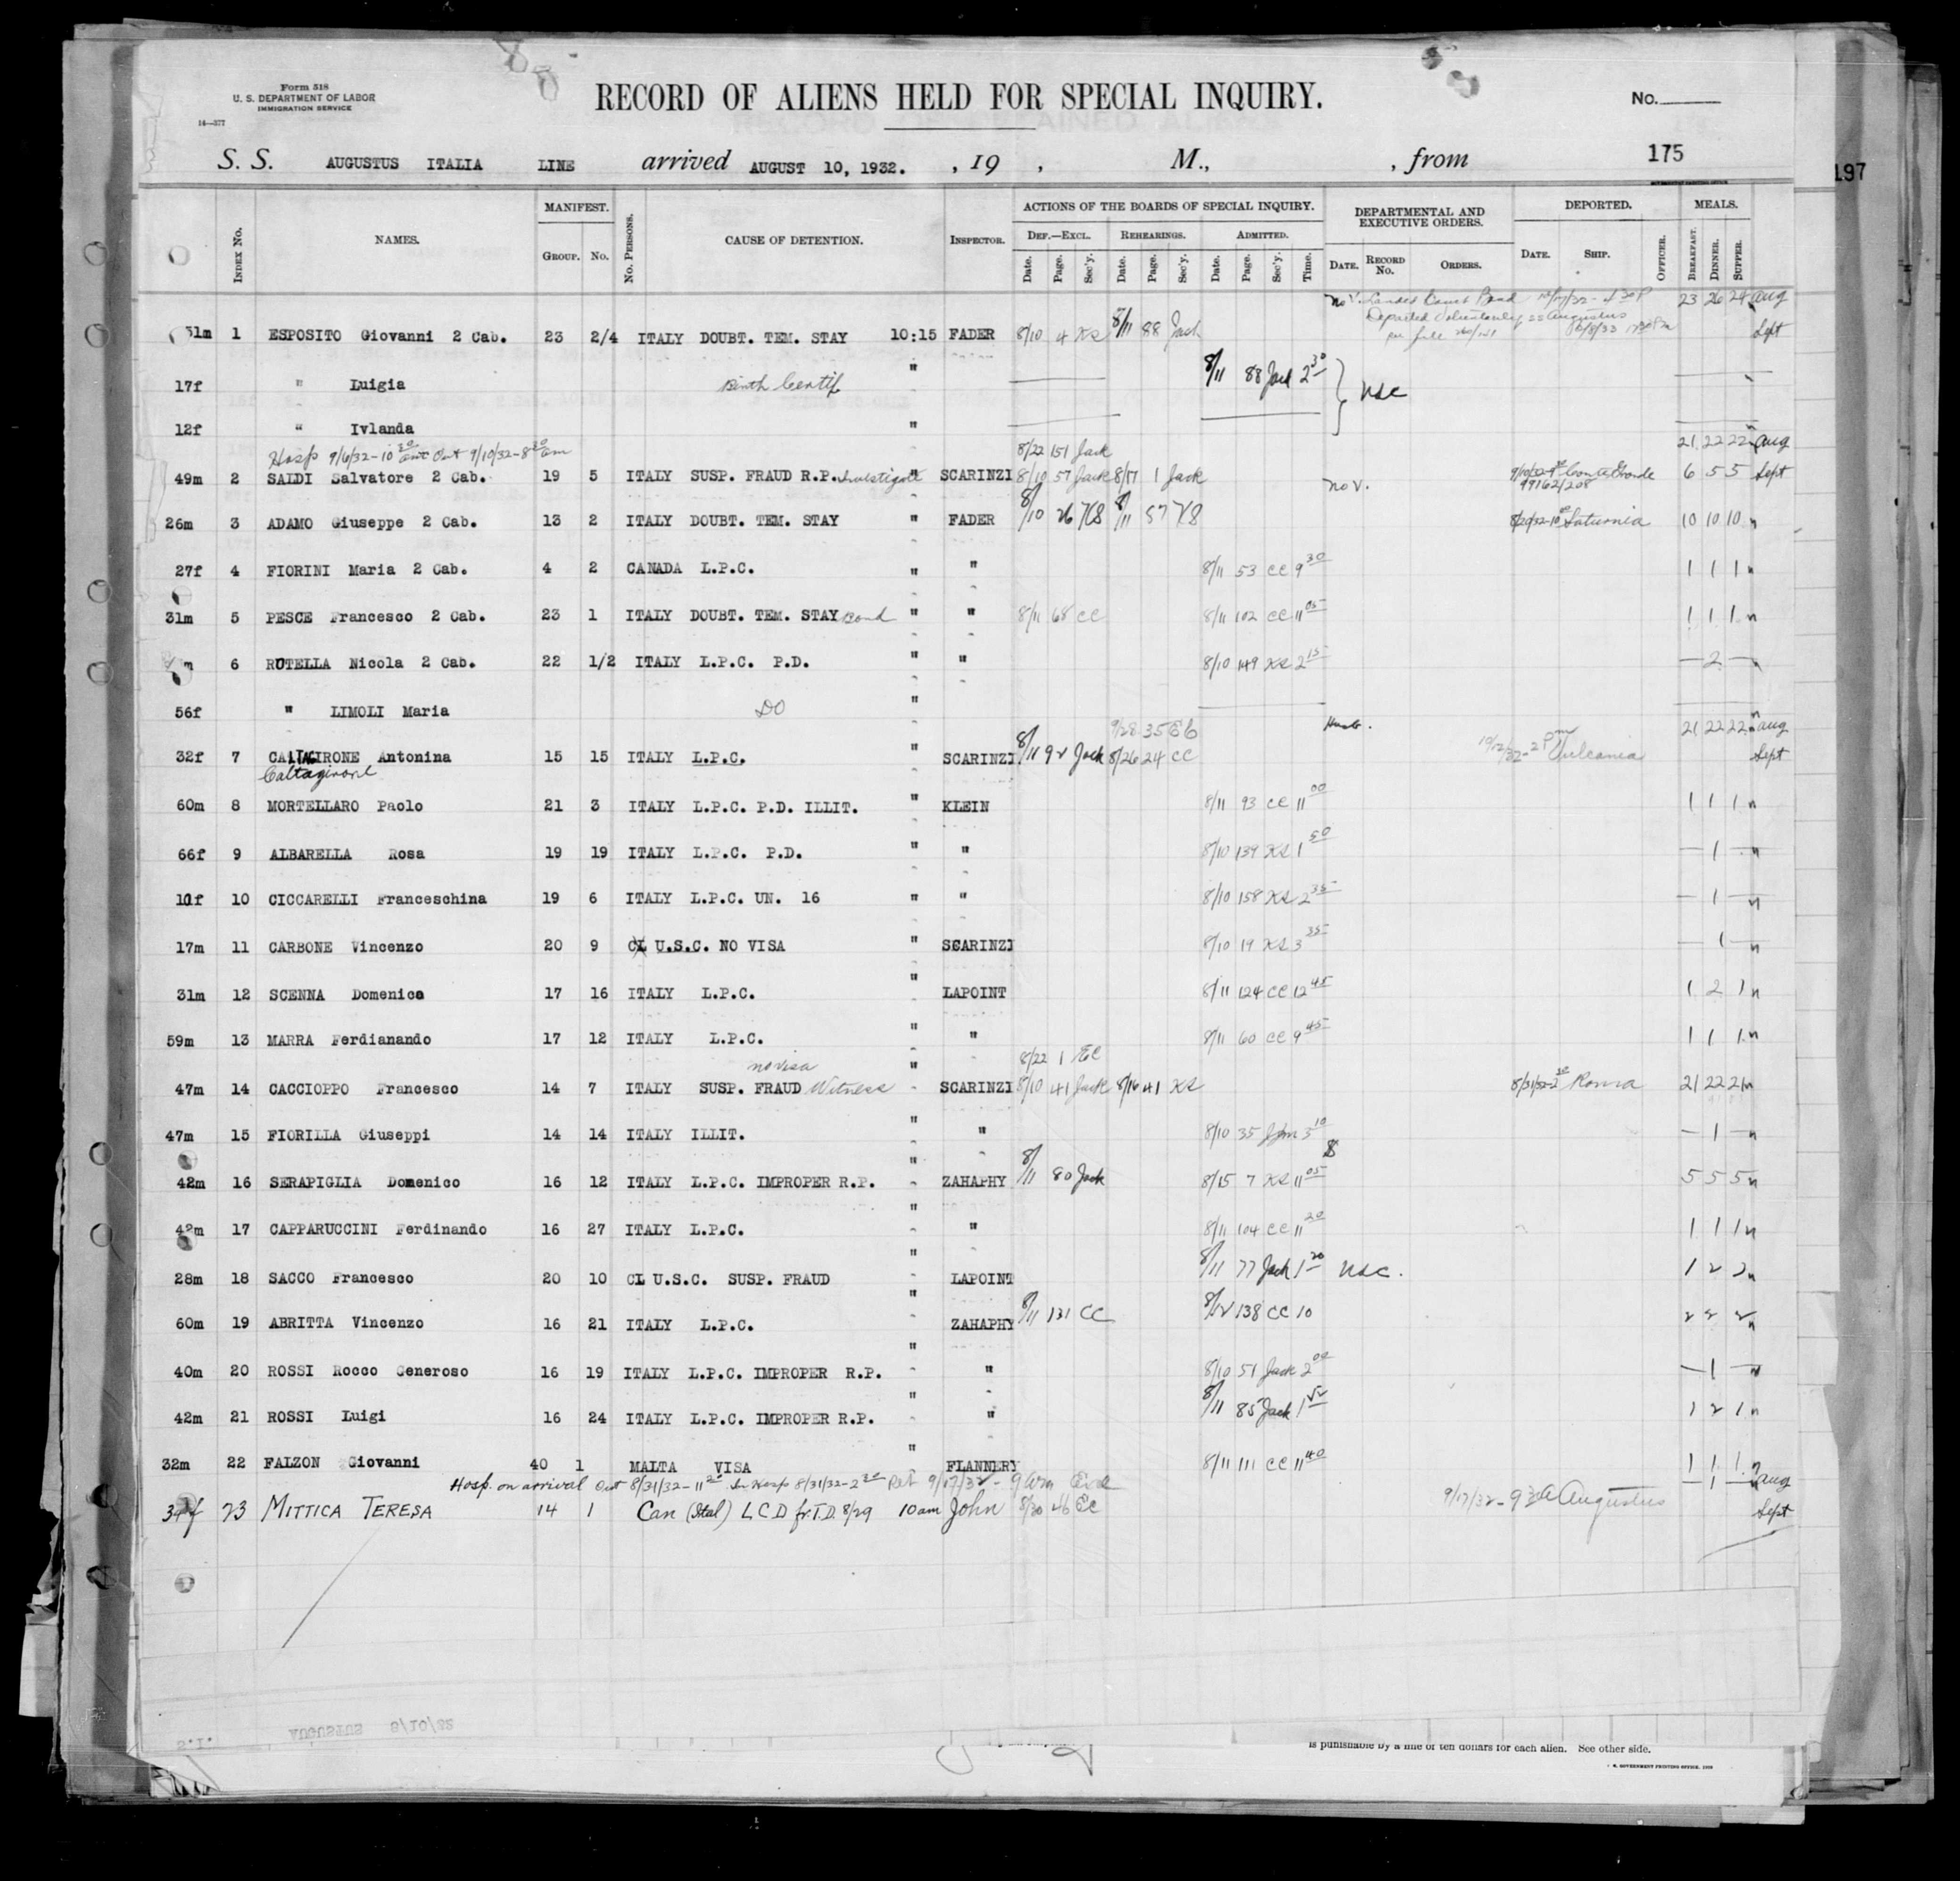 Form 518
U. S. DEPARTMENT OF LABOR
IMMIGRATION SERVICE
14—377
RECORD OF ALIENS HELD FOR SPECIAL INQUIRY.
No.
S. S. AUGUSTUS ITALIA LINE arrived AUGUST 10, 1932. , 19 , M., , from 175
197
INDEX No. NAMES. MANIFEST. GROUP. No. No. PERSONS. CAUSE OF DETENTION. INSPECTOR. ACTIONS OF THE BOARDS OF SPECIAL INQUIRY. DEF.—EXCL. Date. Page. Sec'y. REHEARINGS. Date. Page. Sec'y. ADMITTED. Date. Page. Sec'y. Time. DEPARTMENTAL AND EXECUTIVE ORDERS. DATE. RECORD No. ORDERS. DEPORTED. DATE. SHIP. OFFICER. MEALS. BREAKFAST. DINNER. SUPPER.
Nov. Landed 23 26 24 Aug
Departed Voluntarily SS Augustus
51m 1 ESPOSITO Giovanni 2 Cab. 23 2/4 ITALY DOUBT. TEM. STAY 10:15 FADER 8/10 4 KS 8/11 88 Jack Sept
17f " Luigia Birth Certif " 8/11 88 Jack 2 30 } USC
12f " Ivlanda "
Hosp 9/6/32-10 30 Out 9/10/32-8 30 am 8/22 151 Jack 21 22 22 Aug
49m 2 SALDI Salvatore 2 Cab. 19 5 ITALY SUSP. FRAUD R.P. Investigate " SCARINZI 8/10 57 Jack 8/17 1 Jack Nov. 9/10/32 Conte Grande 6 5 5 Sept
99162/208
26m 3 ADAMO Giuseppe 2 Cab. 13 2 ITALY DOUBT. TEM. STAY " FADER 8/10 26 KS 8/11 57 KS 8/20/32-10 Saturnia 10 10 10 "
27f 4 FIORINI Maria 2 Cab. 4 2 CANADA L.P.C. " " 8/11 53 CC 9 30 1 1 1 "
31m 5 PESCE Francesco 2 Cab. 23 1 ITALY DOUBT. TEM. STAY Bond " " 8/11 68 CC 8/11 102 CC 11 05 1 1 1 "
m 6 RUTELLA Nicola 2 Cab. 22 1/2 ITALY L.P.C. P.D. " " 8/10 149 KS 2 15 — 2 — "
56f " LIMOLI Maria DO "
9/28 35 EC 21 22 22 Aug
32f 7 CALTAGIRONE Antonina 15 15 ITALY L.P.C. " SCARINZI 8/11 92 Jack 8/26 24 CC 10/12/32-2 Pm Vulcania Sept
Caltagirone
60m 8 MORTELLARO Paolo 21 3 ITALY L.P.C. P.D. ILLIT. " KLEIN 8/11 93 CC 11 00 1 1 1 "
66f 9 ALBARELLA Rosa 19 19 ITALY L.P.C. P.D. " " 8/10 139 KS 1 50 — 1 — "
11f 10 CICCARELLI Franceschina 19 6 ITALY L.P.C. UN. 16 " " 8/10 158 KS 2 35 — 1 — "
17m 11 CARBONE Vincenzo 20 9 CL U.S.C. NO VISA " SCARINZI 8/10 19 KS 3 35 — 1 — "
31m 12 SCENNA Domenico 17 16 ITALY L.P.C. " LAPOINT 8/11 124 CC 12 45 1 2 1 "
59m 13 MARRA Ferdianando 17 12 ITALY L.P.C. " " 8/11 60 CC 9 45 1 1 1 "
no visa 8/22 1 EC
47m 14 CACCIOPPO Francesco 14 7 ITALY SUSP. FRAUD Witness " SCARINZI 8/10 41 Jack 8/16 41 KS 8/31/32-2 30 Roma 21 22 21 "
47m 15 FIORILLA Giuseppi 14 14 ITALY ILLIT. " " 8/10 35 John 3 10 — 1 — "
42m 16 SERAPIGLIA Domenico 16 12 ITALY L.P.C. IMPROPER R.P. " ZAHAPHY 8/11 80 Jack 8/15 7 KS 11 05 5 5 5 "
42m 17 CAPPARUCCINI Ferdinando 16 27 ITALY L.P.C. " " 8/11 104 CC 11 20 1 1 1 "
28m 18 SACCO Francesco 20 10 CL U.S.C. SUSP. FRAUD " LAPOINT 8/11 77 Jack 1 20 USC. 1 2 2 "
60m 19 ABRITTA Vincenzo 16 21 ITALY L.P.C. " ZAHAPHY 8/11 131 CC 8/12 138 CC 10 2 2 2 "
40m 20 ROSSI Rocco Generoso 16 19 ITALY L.P.C. IMPROPER R.P. " " 8/10 51 Jack 2 00 — 1 — "
42m 21 ROSSI Luigi 16 24 ITALY L.P.C. IMPROPER R.P. " " 8/11 85 Jack 1 1 2 1 "
32m 22 FALZON Giovanni 40 1 MALTA VISA " FLANNERY 8/11 111 CC 11 40 1 1 1 "
Hosp. on arrival Out 8/31/32-11 20 In Hosp 8/31/32-2 30 Ret 9/17/32- 9 am — 1 — Aug
34f 23 MITTICA TERESA 14 1 Can (Ital) L C D fr. T.D. 8/29 10am John 8/30 46 EC 9/17/32-9 30 A Augustus Sept
S.I. AUGUSTUS 8/10/32
is punishable by a fine of ten dollars for each alien. See other side.
U. S. GOVERNMENT PRINTING OFFICE